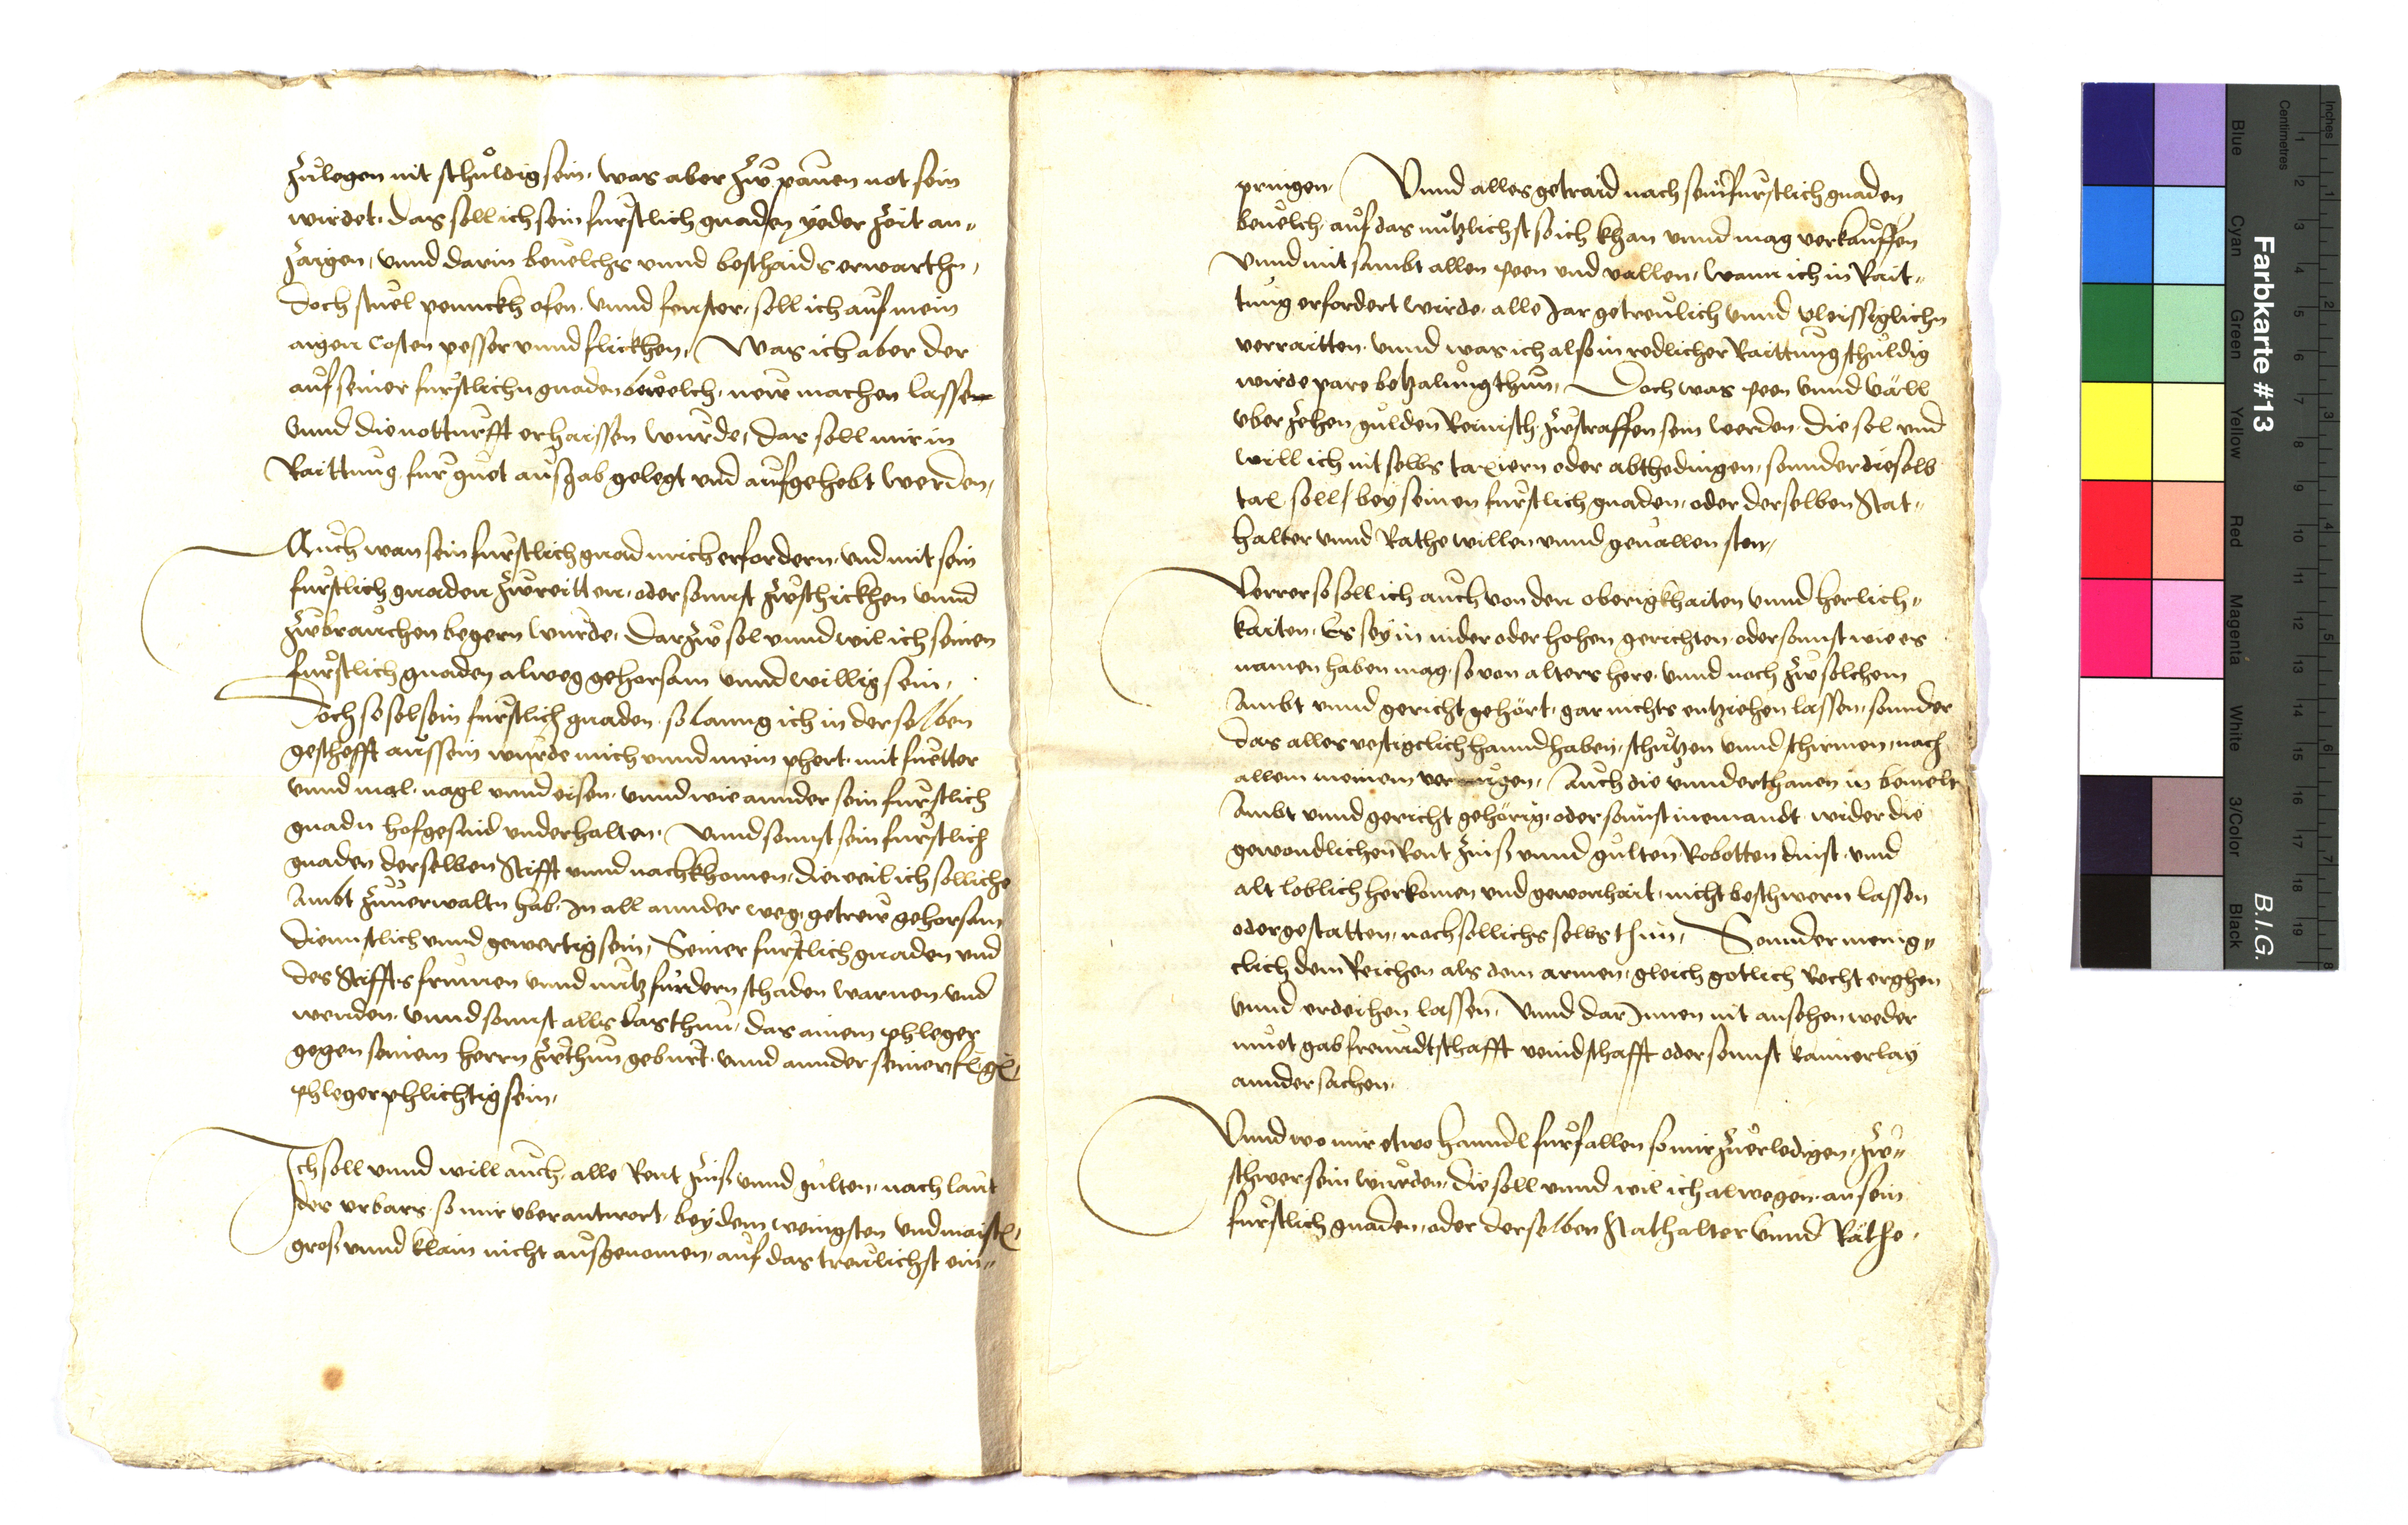 zulegen nit schuldig sein, was aber zw pauen not sein
wirdet, das soll ich sein furstlich gnaden yeder zeit an-
zaigen, vnnd darin beuelchs vnnd beschaids erwarthn,
doch stuel pennckh ofen vnnd fenster, soll ich auf mein
aigen Costen pesser vnnd flickhen, Was ich aber der
auf seiner furstlichn gnaden beuelch, new machen lassen
vnnd die notturfft erhaissen wurde, das soll mir in
Raittung fur guet ausgab gelegt vnd aufgehebt werden,
Auch wan sein furstlich gnad mich erfordern, vnd mit sein
furstlich gnaden zwreitten, oder sonnst zwschickhen vnnd
zwbrauchen begern wurde, darzw sol vnnd wil ich seinen
furstlich gnaden alweg gehorsam vnnd willig sein,
Doch so sol sein furstlich gnaden, so lanng ich in derselben
gescheft aussein wurde mich vnnd mein phert, mit fuetter
vnnd mal, nagl vnnd eisen, vnnd wie annder sein furstlich
gnadn hofgesind vnderhalten, Vnnd sonnst sein furstlich
gnaden derselben Stifft vnnd nachkhomen, dieweil ich solliche
Ambt zuuerwaltn hab, In all annder weg, getrew gehorsam
diennstlich vnnd gewertig sein, Seiner furstlich gnaden vnd
des Stiffts frumen vnnd nutz furdern schaden warnen, vnd
wenden, vnnd sonnst alls das thun, das ainem phleger
gegen seinem herrn zwthun geburt, vnnd annder seiner f. g.
phleger phlichtig sein,
Ich soll vnnd will auch, alle Rent zinß vnnd gulten, nach laut
des vrbars, so mir vberantwort, bey dem wenigsten vnd maisten,
groß vnnd klain nicht ausgenomen, auf das treulichst ein-
pringen, Vnnd alles getraid nach seiner furstlich gnaden
beuelch, auf das nutzlichst so ich khan vnnd mag verkauffen
Vnnd mit sambt allen peen vnd vallen, wann ich in Rait-
tung erfordert wirde, alle Jar getreulich vnnd vleissiglichn
verraitten, vnnd was ich also in redlicher Raittung schuldig
wirde pare betzalung thun, Doch was peen vnnd väll
vber zehen gulden Reinisch, zwstraffen sein werden, die sol vnd
will ich nit selbs taxiern oder abthedingen, sonnder dieselb
tax soll bey seinen furstlich gnaden, oder derselben Stat-
halter vnnd Rathe willen vnnd geuallen sten,
Verrer so soll ich auch von den oberigkhaiten vnnd herlich-
kaiten, Es sey in nider oder hohen gerichten, oder sonnst wie es
namen haben mag, so von alters here, vnnd noch zw solchem
Ambt vnnd gericht gehört, gar nichts entziehen lassen, sonnder
das alles vestigclich hanndhaben, schutzen vnnd schirmen, nach
allem meinem vermugen, Auch die vnnderthanen in bemelt
Ambt vnnd gericht gehörig, oder sonnst niemandt wider die
gewondlichen Rent zinß vnnd gulten Robotten dinst vnnd
alt loblich herkomen vnd gewonhait, nicht beschwern lassen
oder gestatten, noch sollichs selbs thun, Sonnder menig-
clich dem Reichen als dem armen, gleich gotlich Recht erghen
vnnd erdeihen lassen, Vnnd darInnen nit ansehen weder
muet gab freundtschafft veindschafft oder sonnst kainerlay
annder sachen,
Vnnd wo mir etwo hanndl furfallen so mir zuerledigen, zw-
schwer sein wurden, die soll vnnd wil ich alwegen, an sein
furstlich gnaden, oder derselben Stathalter vnnd Räthe,
Farbkarte #13
B.I.G.
Blue
Cyan
Green
Yellow
Red
Magenta
White
3/Color
Black
Centimetres
Inches
1 2 3 4 5 6 7 8 9 10 11 12 13 14 15 16 17 18 19
1 2 3 4 5 6 7 8